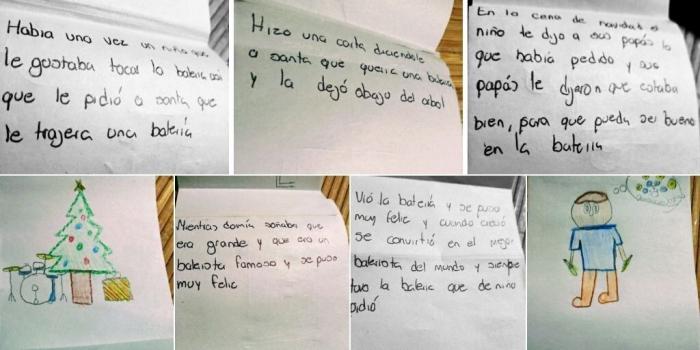 Habia una vez un niño que
le gustaba tocar la bateria asi
que le pidió a santa que
le trajera una batería
Hizo una carta diciendole
a santa que queria una bateria
y la dejó abajo del arbol
En la cena de navidad el
niño le dijo a sus papás lo
que habia pedido y sus
papás le dijeron que estaba
bien, para que pueda ser bueno
en la bateria
Mientras dormía soñaba que
era grande y que era un
baterista famoso y se puso
muy feliz
Vió la batería y se puso
muy feliz y cuando creció
se convirtió en el mejor
baterista del mundo y siempre
tuvo la bateria que de niño
pidió